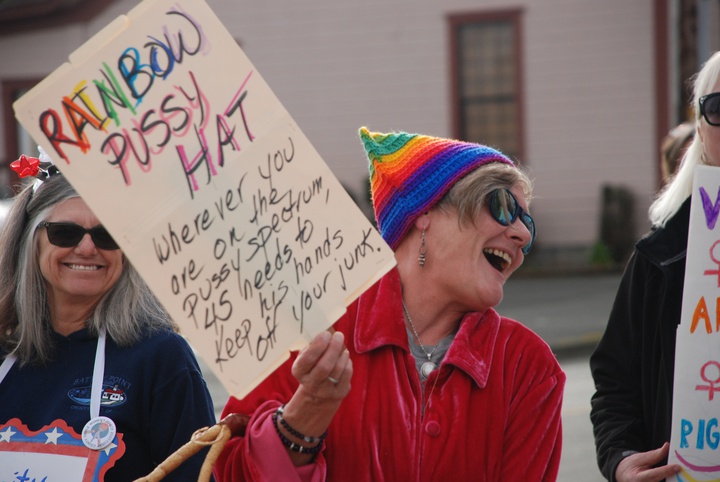 RAINBOW
PUSSY
HAT
Wherever you
are on the
Pussy spectrum,
45 needs to
keep his hands
off your junk.
W
AR
RIG